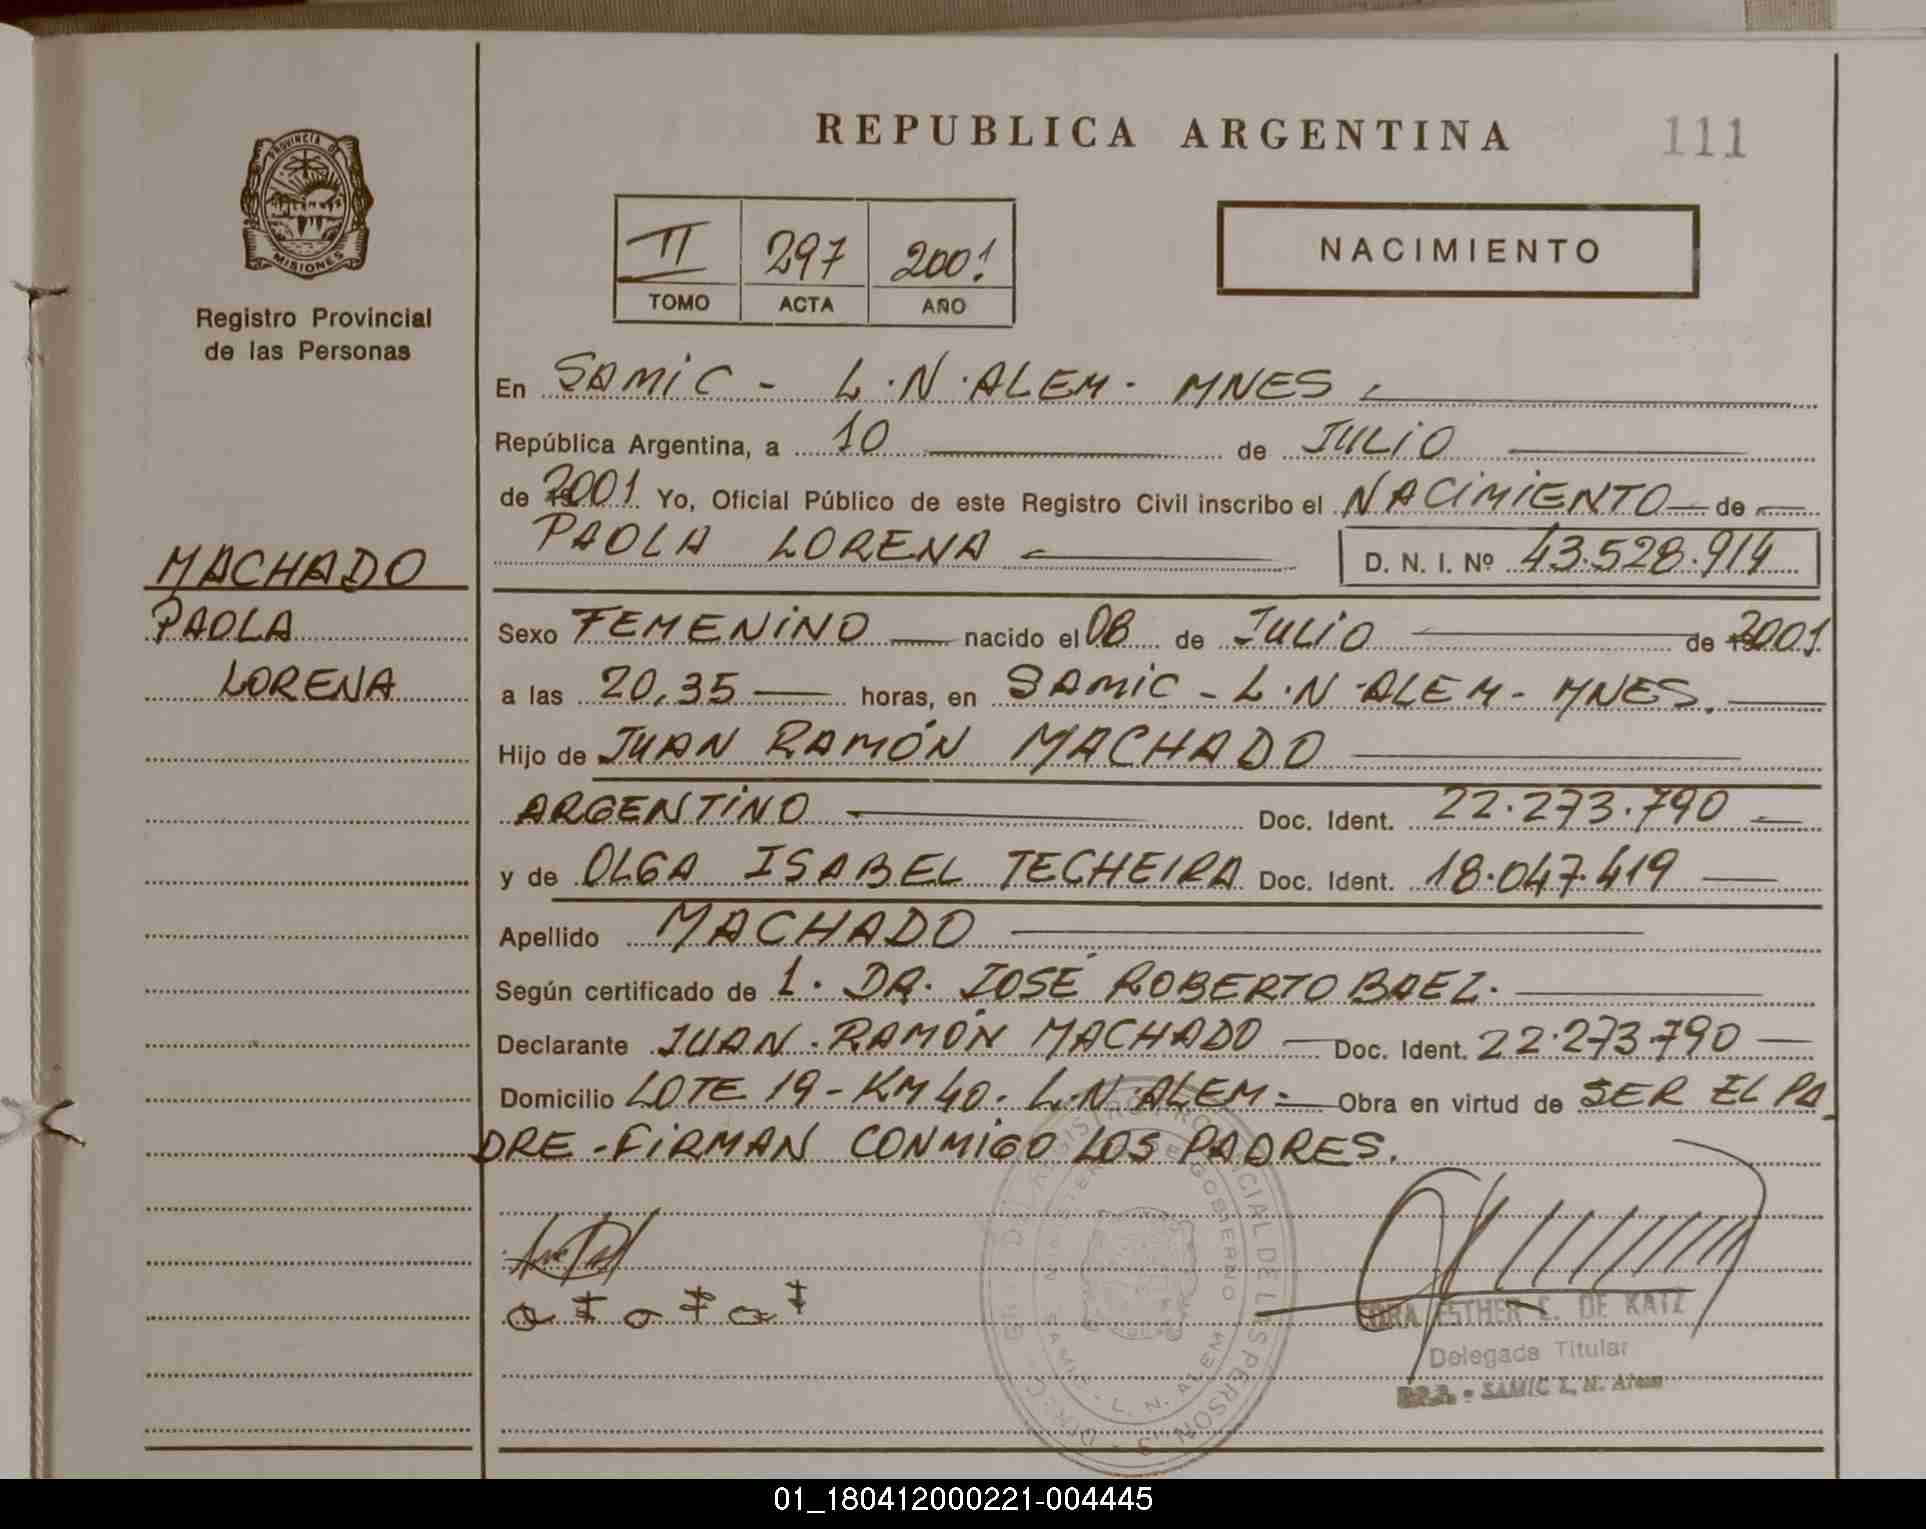 REPUBLICA ARGENTINA
111
PROVINCIA DE
MISIONES
Registro Provincial
de las Personas
II 297 2001
TOMO ACTA AÑO
NACIMIENTO
En SAMIC - L.N. ALEM - MNES
República Argentina, a 10 de JULIO
de 2001 Yo, Oficial Público de este Registro Civil inscribo el NACIMIENTO de
PAOLA LORENA
D. N. I. Nº 43.528.914
MACHADO
PAOLA
LORENA
Sexo FEMENINO nacido el 08 de JULIO de 2001
a las 20,35 horas, en SAMIC - L.N. ALEM - MNES.
Hijo de JUAN RAMÓN MACHADO
ARGENTINO Doc. Ident. 22.273.790
y de OLGA ISABEL TECHEIRA Doc. Ident. 18.047.419
Apellido MACHADO
Según certificado de 1. DR. JOSÉ ROBERTO BAEZ.
Declarante JUAN RAMÓN MACHADO Doc. Ident. 22.273.790
Domicilio LOTE 19 - KM 40. L.N. ALEM - Obra en virtud de SER EL PA
DRE - FIRMAN CONMIGO LOS PADRES.
ESTHER E. DE KATZ
Delegada Titular
SAMIC L. N. Alem
01_180412000221-004445